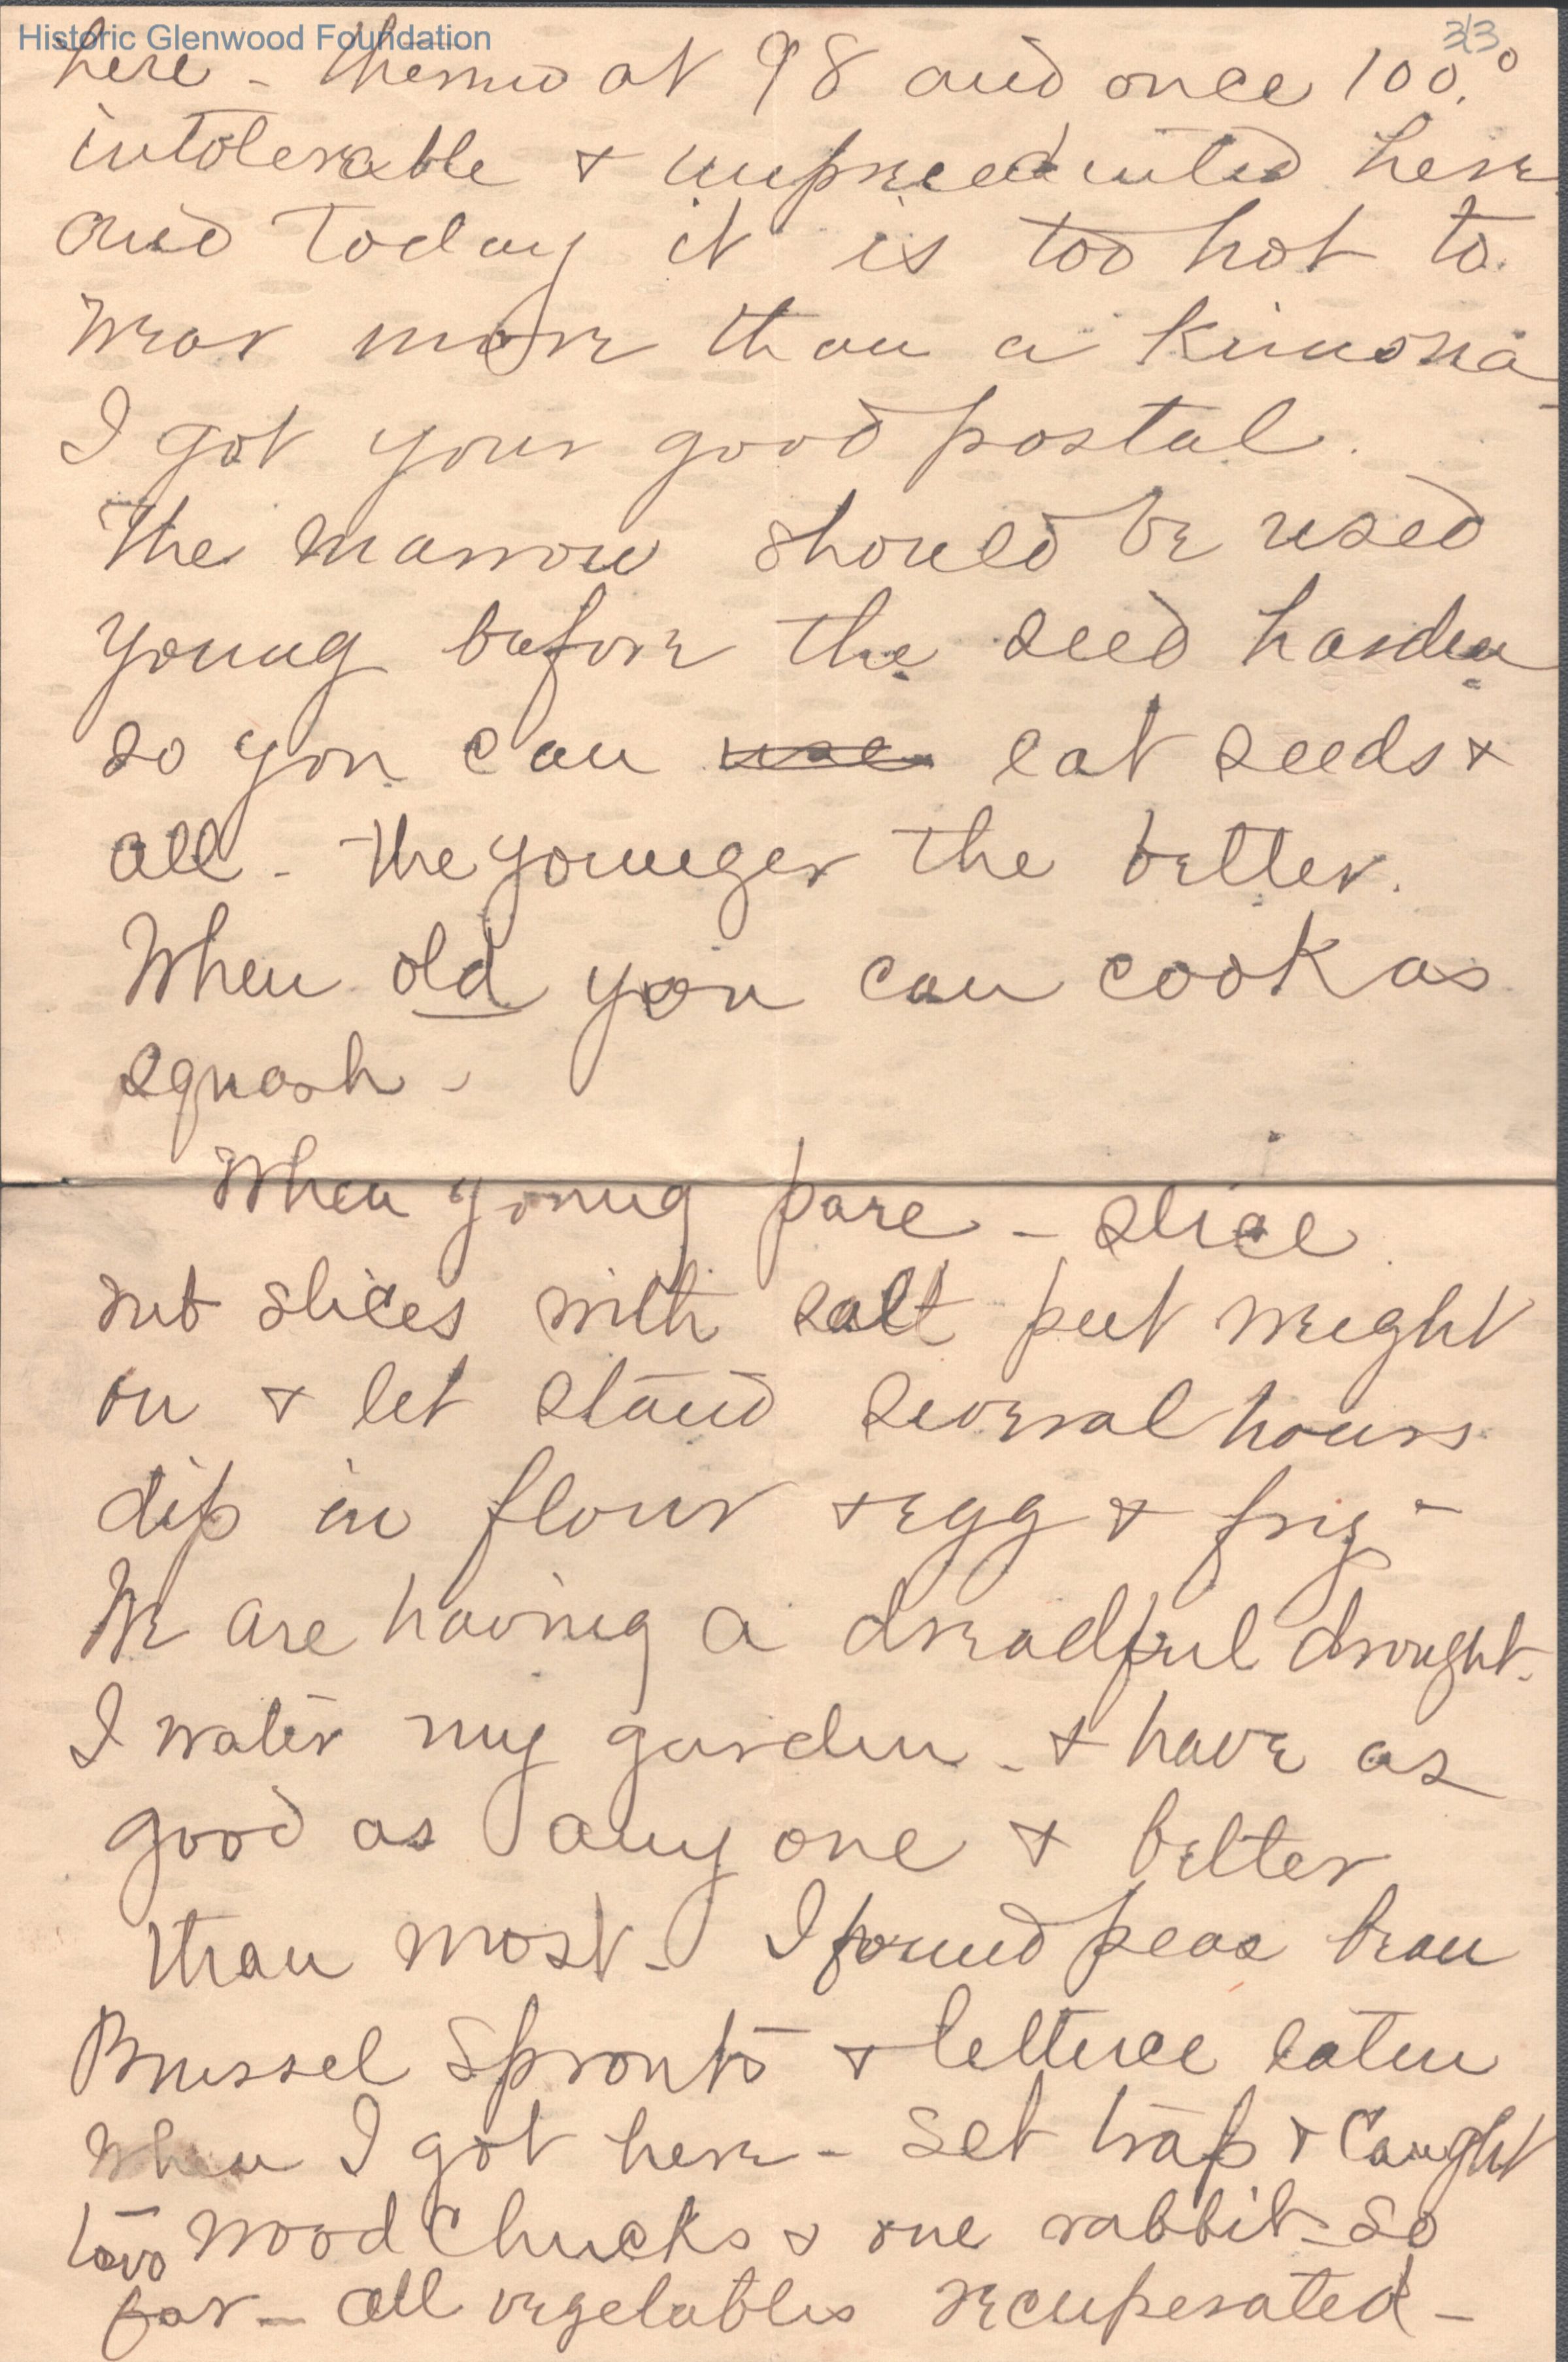 Historic Glenwood Foundation
313
here - thermo at 98 and once 100.°
intolerable & unprecedented here
and today it is too hot to
wear more than a kimona
I got your good postal.
The marrow should be used
young before the seed harden
so you can use eat seeds &
all - the younger the better.
When old you can cook as
squash -
When young pare - slice
rub slices with salt put weight
on & let stand several hours
dip in flour & egg & fry -
We are having a dreadful drought.
I water my garden - & have as
good as any one & better
than most - I found peas bean
Brussel Sprouts & lettuce eaten
when I got here - set trap & caught
two wood chucks & one rabbit - so
far - all vegetables recuperated -